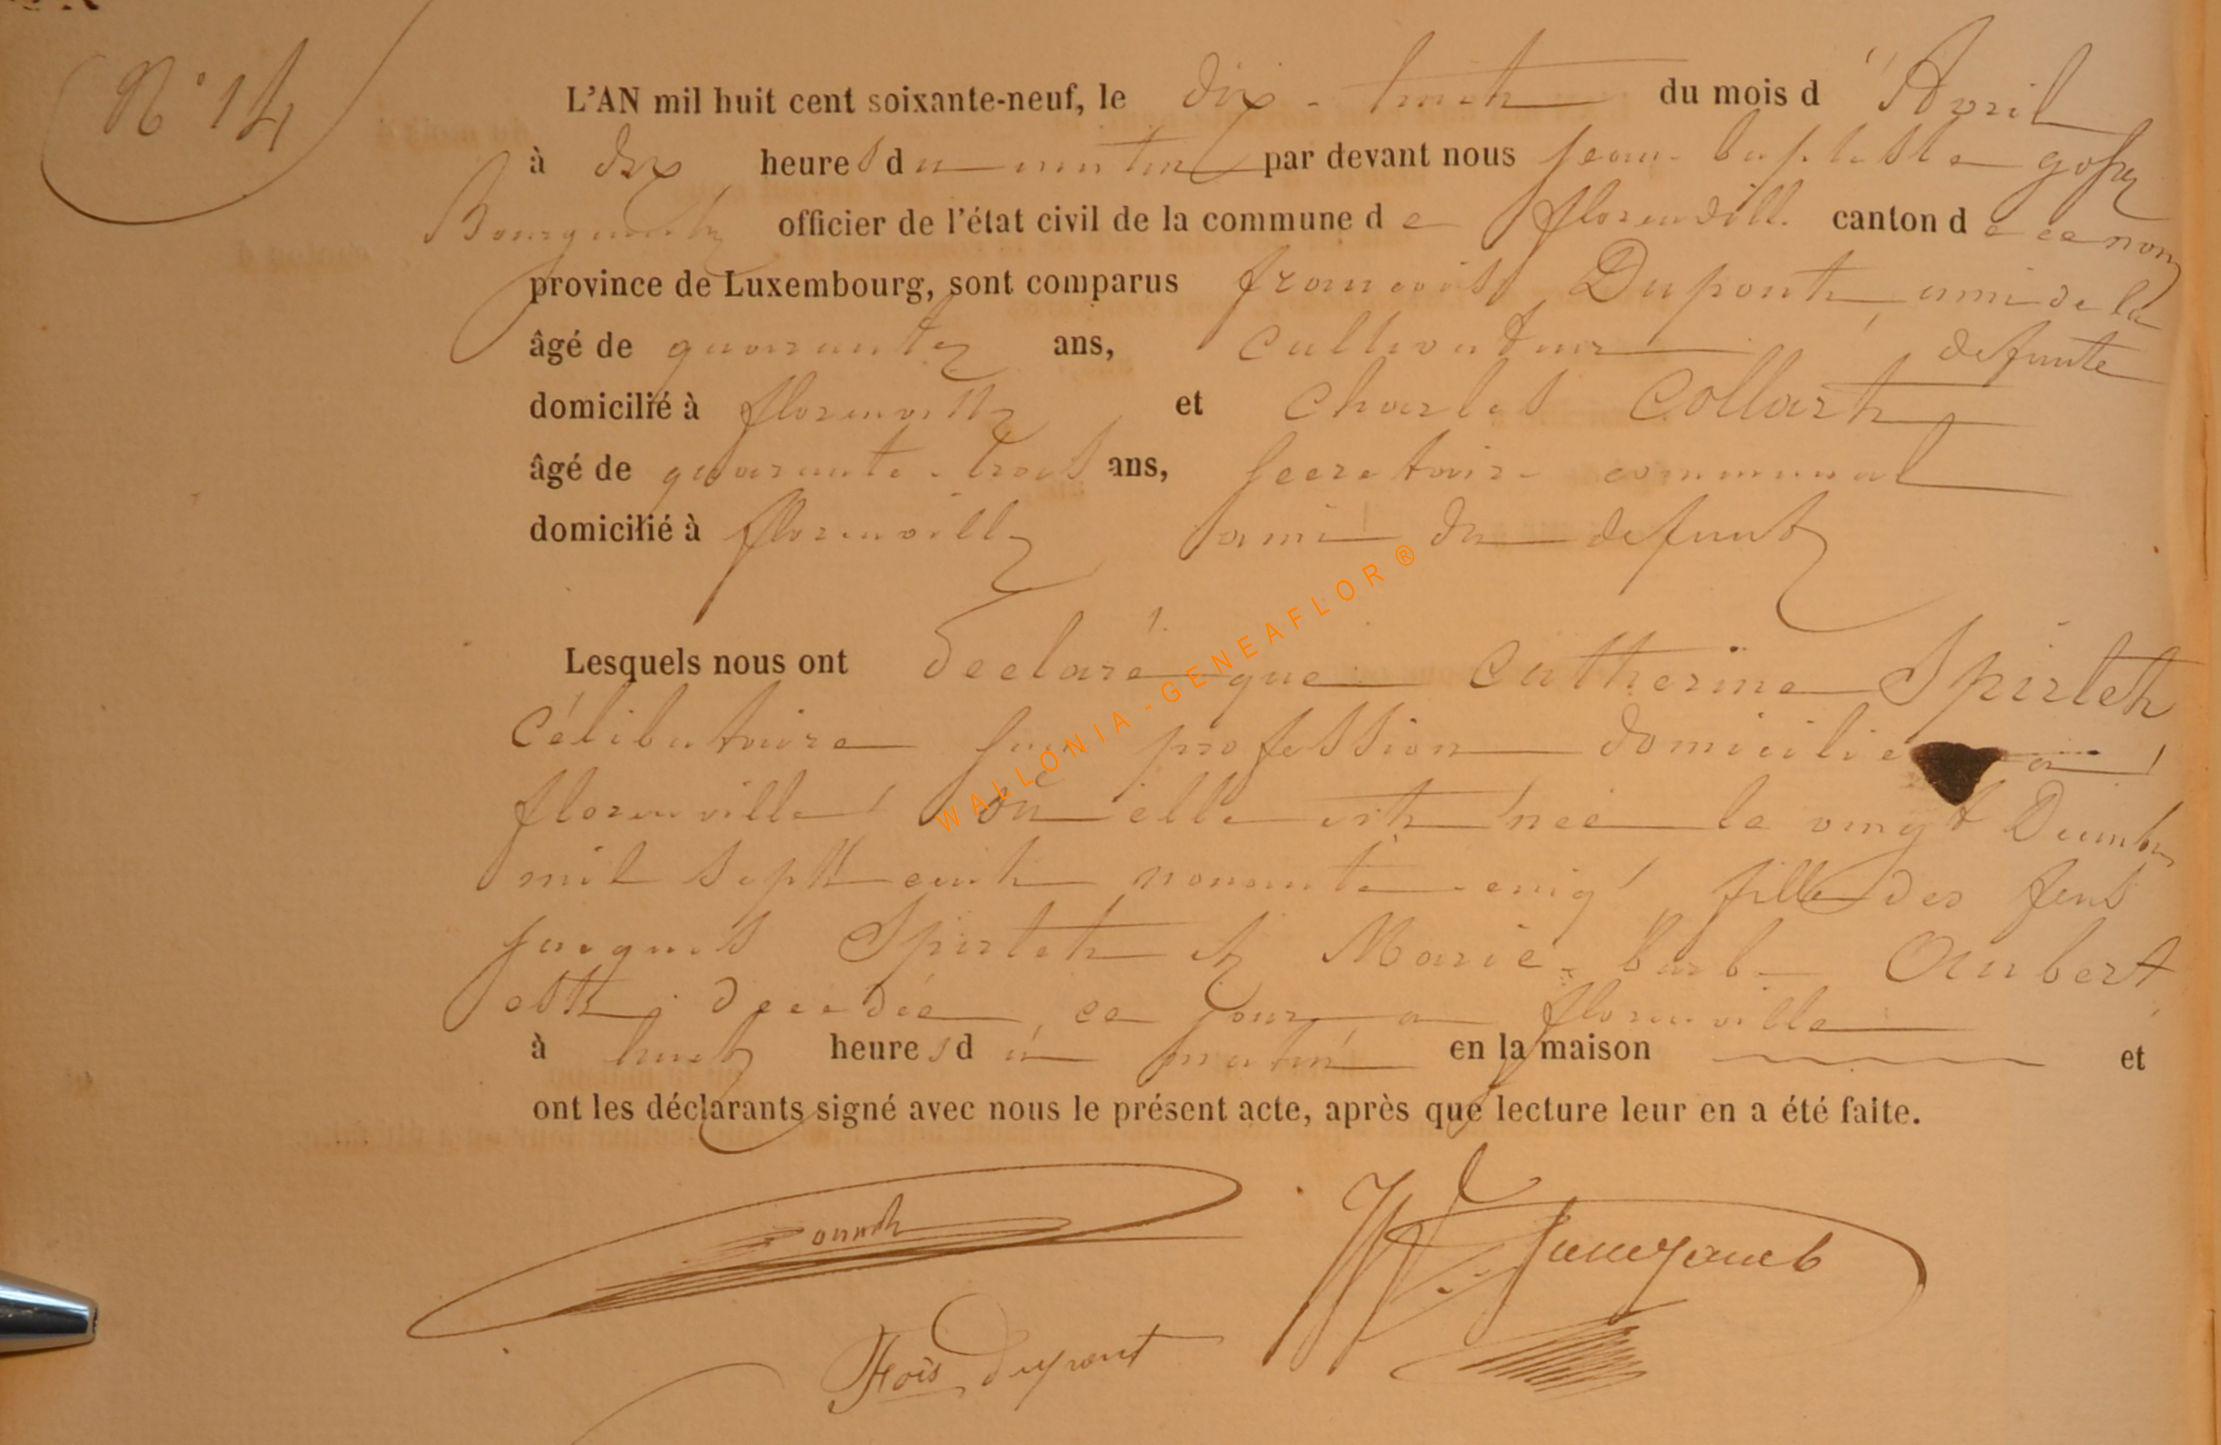 N° 14
L'AN mil huit cent soixante-neuf, le dix-huit du mois d'Avril
à dix heures du matin par devant nous jean-baptiste gofin
Bourguemestre officier de l'état civil de la commune de florenville canton de ce nom
province de Luxembourg, sont comparus francois Dupont, ami de la
âgé de quarante ans, cultivateur, defunte
domicilié à florenville et Charles Collart
âgé de quarante-trois ans, secretaire communal
domicilié à florenville ami du defunt
Lesquels nous ont declaré que Catherine Spirlet
célibataire sans profession domicilie à
florenville où elle est née le vingt Decembre
mil sept cent nonante-cinq, fille des feus
jacques Spirlet et Marie-barbe Aubert
est decedée ce jour a florenville
à huit heures du matin en la maison et
ont les déclarants signé avec nous le présent acte, après que lecture leur en a été faite.
Fois dupont
WALLONIA - GENEAFLOR ®